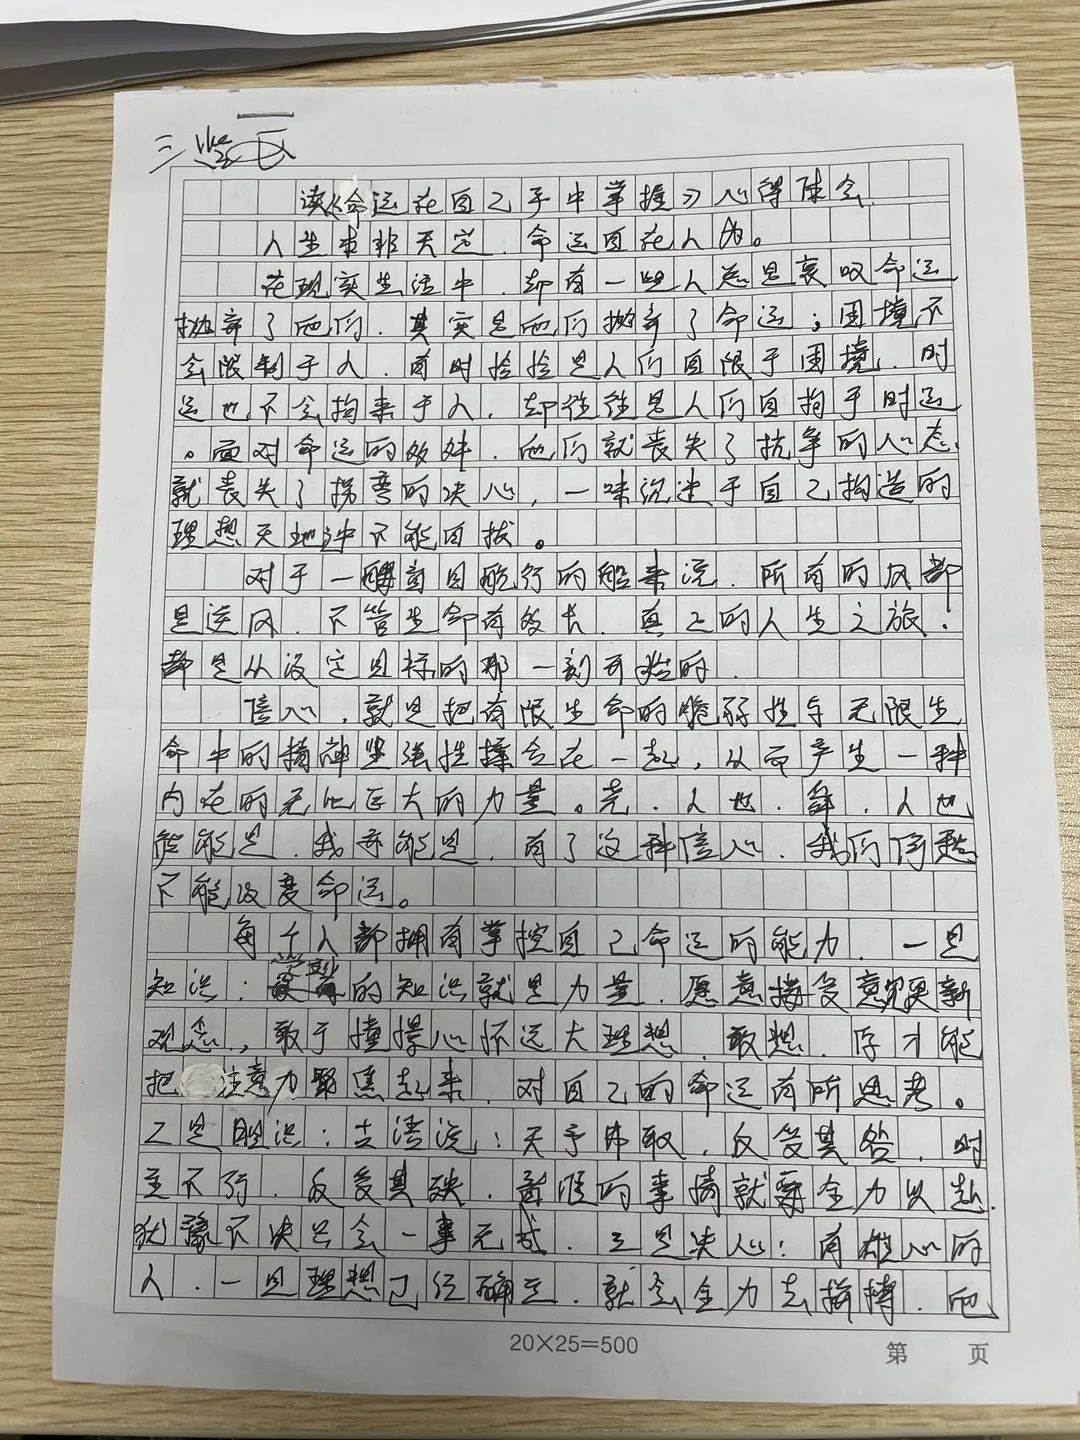 三监区
读《命运在自己手中掌握》心得体会
人生本非天定,命运自在人为。
在现实生活中,却有一些人总是哀叹命运
抛弃了他们,其实是他们抛弃了命运;困境不
会限制于人,有时恰恰是人们自限于困境,时
运也不会拘束于人,却往往是人们自拘于时运
。面对命运的效对,他们就丧失了抗争的心态,
就丧失了拐弯的决心,一味沉迷于自己构造的
理想天地中不能自拔。
对于一艘盲目航行的船来说,所有的风都
是逆风,不管生命有多长,真正的人生之旅,
都是从设定目标的那一刻开始的.
信心,就是把有限生命的脆弱性与无限生
命中的精神坚强性揉合在一起,从而产生一种
内在的无比巨大的力量。尧,人也,舜,人也
能是,我亦能是,有了这种信心,我们何愁
不能改变命运。
每个人都拥有掌控自己命运的能力,一是
知识:学习的知识就是力量,愿意接受意见更新
观念,敢于憧憬心怀远大理想,敢想,你才能
把注意力聚焦起来,对自己的命运有所思考。
二是胆识:古语说:天予弗取,反受其咎,时
至不行,反受其殃,艰难的事情就要全力以赴.
犹豫不决只会一事无成,三是决心:有雄心的
人,一旦理想已经确定,就会全力去拼搏,他
20×25=500
第 页